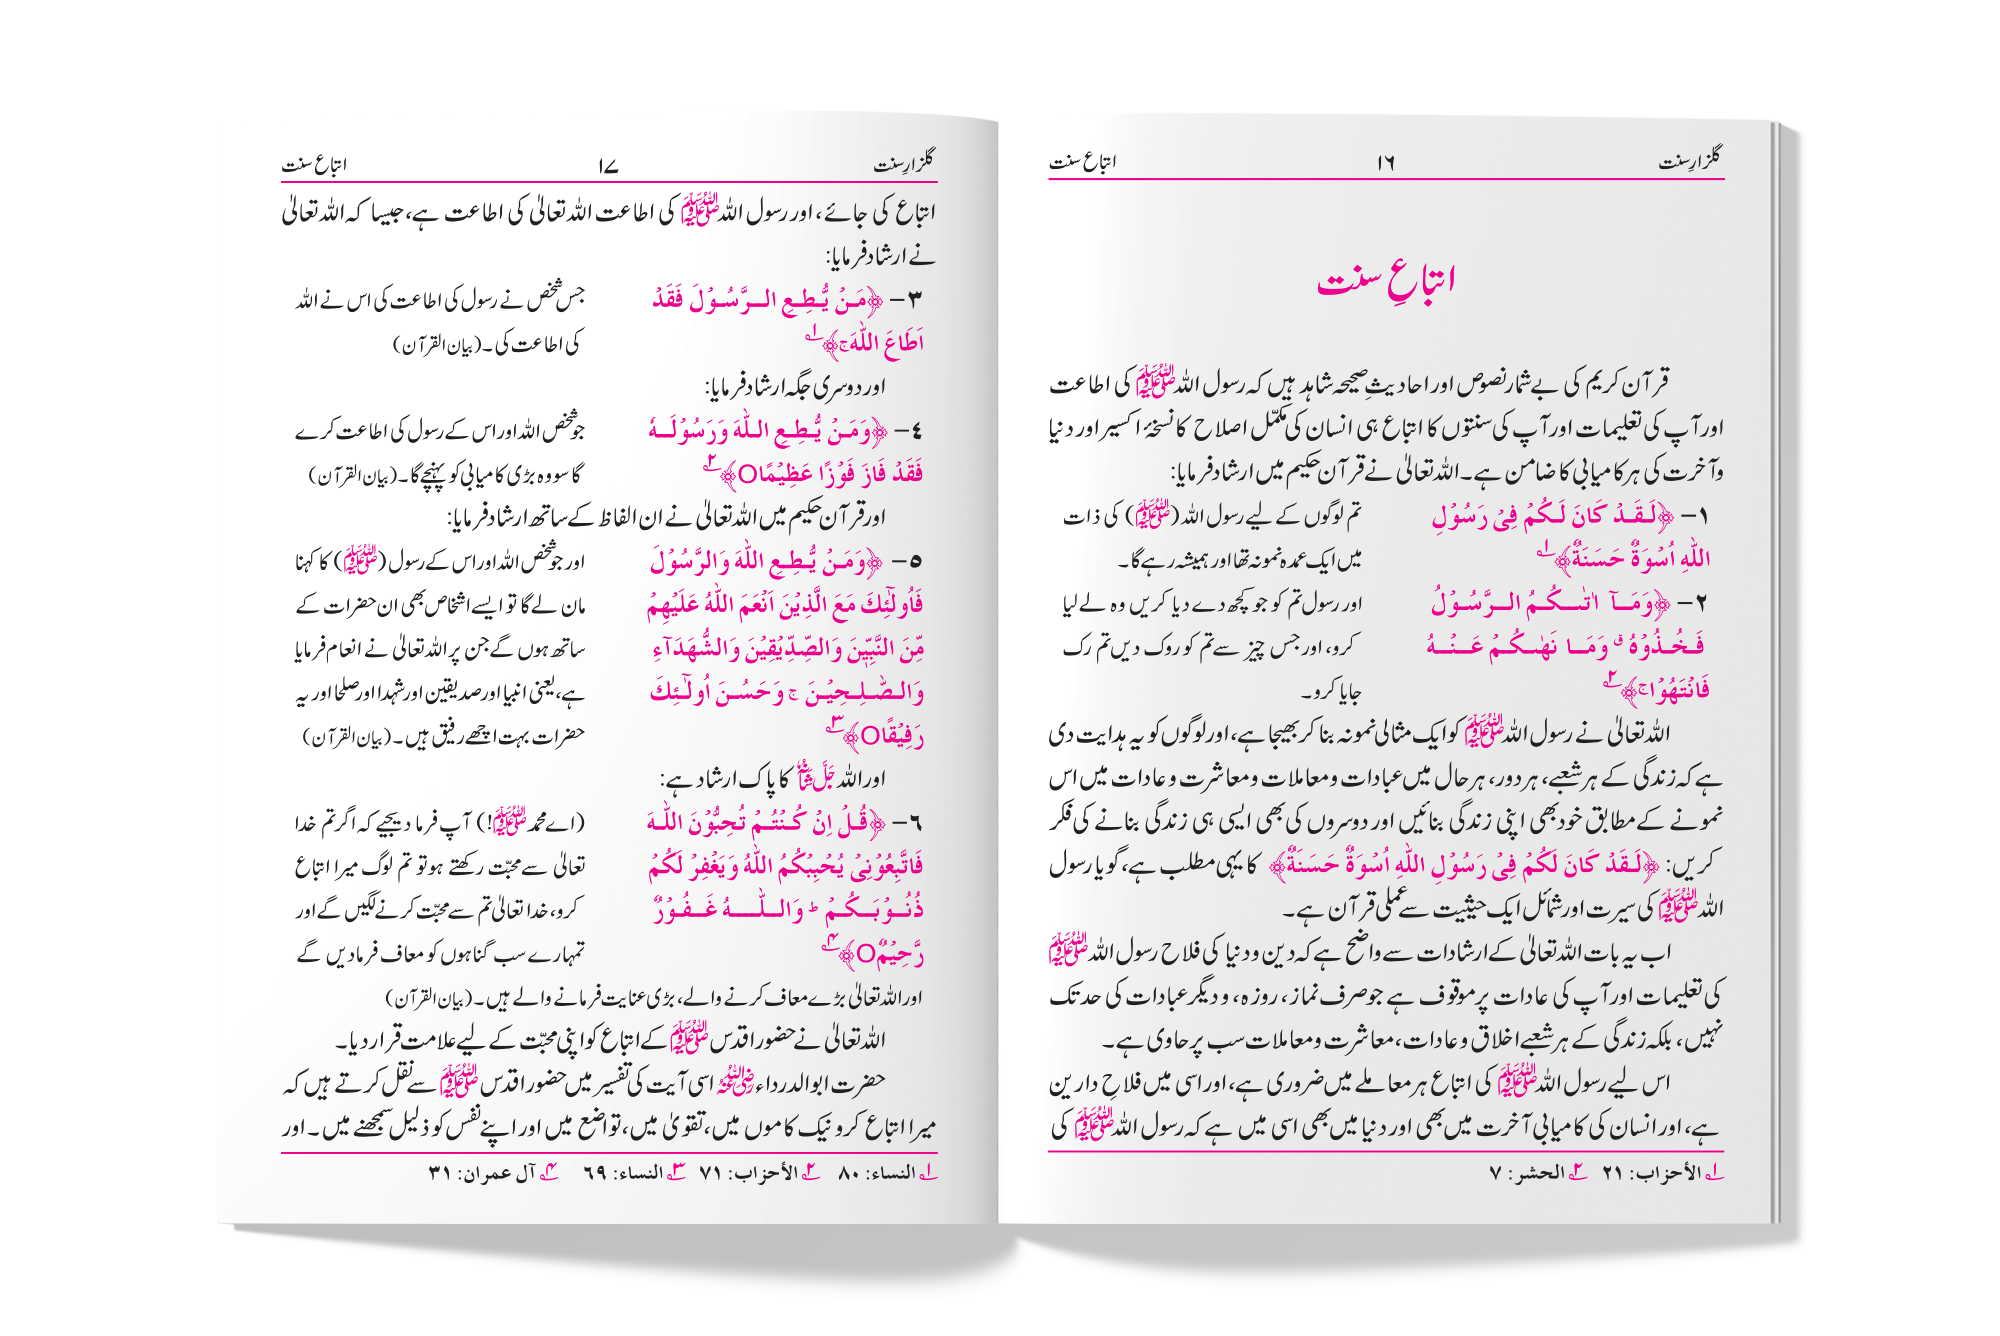 گلزارِ سنت ١٦ اتباع سنت
اتباعِ سنت
قرآن کریم کی بے شمار نصوص اور احادیثِ صحیحہ شاہد ہیں کہ رسول اللہ ﷺ کی اطاعت
اور آپ کی تعلیمات اور آپ کی سنتوں کا اتباع ہی انسان کی مکمّل اصلاح کا نسخۂ اکسیر اور دنیا
وآخرت کی ہر کامیابی کا ضامن ہے۔ اللہ تعالیٰ نے قرآن حکیم میں ارشاد فرمایا:
١– ﴿لَـقَـدْ كَانَ لَـكُمْ فِىْ رَسُوْلِ تم لوگوں کے لیے رسول اللہ (ﷺ) کی ذات
اللّٰهِ اُسْوَةٌ حَسَنَةٌ﴾ ۱؎ میں ایک عمدہ نمونہ تھا اور ہمیشہ رہے گا۔
٢– ﴿وَمَـآ اٰتٰـىـكُـمُ الـرَّسُـوْلُ اور رسول تم کو جو کچھ دے دیا کریں وہ لے لیا
فَـخُـذُوْهُ ۤ وَمَـا نَهٰـىكُـمْ عَـنْـهُ کرو، اور جس چیز سے تم کو روک دیں تم رک
فَانْتَهُوْا ج﴾ ۲؎ جایا کرو۔
اللہ تعالیٰ نے رسول اللہ ﷺ کو ایک مثالی نمونہ بنا کر بھیجا ہے، اور لوگوں کو یہ ہدایت دی
ہے کہ زندگی کے ہر شعبے، ہر دور، ہر حال میں عبادات و معاملات و معاشرت و عادات میں اس
نمونے کے مطابق خود بھی اپنی زندگی بنائیں اور دوسروں کی بھی ایسی ہی زندگی بنانے کی فکر
کریں: ﴿لَـقَدْ كَانَ لَكُمْ فِىْ رَسُوْلِ اللّٰهِ اُسْوَةٌ حَسَنَةٌ﴾ کا یہی مطلب ہے، گویا رسول
اللہ ﷺ کی سیرت اور شمائل ایک حیثیت سے عملی قرآن ہے۔
اب یہ بات اللہ تعالیٰ کے ارشادات سے واضح ہے کہ دین و دنیا کی فلاح رسول اللہ ﷺ
کی تعلیمات اور آپ کی عادات پر موقوف ہے جو صرف نماز، روزہ، و دیگر عبادات کی حد تک
نہیں، بلکہ زندگی کے ہر شعبے اخلاق و عادات، معاشرت و معاملات سب پر حاوی ہے۔
اس لیے رسول اللہ ﷺ کی اتباع ہر معاملے میں ضروری ہے، اور اسی میں فلاحِ دارین
ہے، اور انسان کی کامیابی آخرت میں بھی اور دنیا میں بھی اسی میں ہے کہ رسول اللہ ﷺ کی
۱؎ الأحزاب: ٢١ ۲؎ الحشر: ٧
گلزارِ سنت ۱۷ اتباع سنت
اتباع کی جائے، اور رسول اللہ ﷺ کی اطاعت اللہ تعالیٰ کی اطاعت ہے، جیسا کہ اللہ تعالیٰ
نے ارشاد فرمایا:
٣– ﴿مَـنْ يُّـطِـعِ الـرَّسُـوْلَ فَقَدْ جس شخص نے رسول کی اطاعت کی اس نے اللہ
اَطَاعَ اللّٰهَ ج﴾ ۱؎ کی اطاعت کی۔ (بیان القرآن)
اور دوسری جگہ ارشاد فرمایا:
٤– ﴿وَمَـنْ يُّـطِـعِ الـلّٰهَ وَرَسُوْلَـهٗ جو شخص اللہ اور اس کے رسول کی اطاعت کرے
فَقَدْ فَازَ فَوْزًا عَظِيْمًاO﴾ ۲؎ گا سو وہ بڑی کامیابی کو پہنچے گا۔ (بیان القرآن)
اور قرآن حکیم میں اللہ تعالیٰ نے ان الفاظ کے ساتھ ارشاد فرمایا:
٥– ﴿وَمَـنْ يُّـطِـعِ اللّٰهَ وَالرَّسُوْلَ اور جو شخص اللہ اور اس کے رسول (ﷺ) کا کہنا
فَاُولٰٓئِكَ مَعَ الَّذِيْنَ اَنْعَمَ اللّٰهُ عَلَيْهِمْ مان لے گا تو ایسے اشخاص بھی ان حضرات کے
مِّنَ النَّبِيّٖنَ وَالصِّدِّيْقِيْنَ وَالشُّهَدَآءِ ساتھ ہوں گے جن پر اللہ تعالیٰ نے انعام فرمایا
وَالـصّٰـلِـحِيْـنَ ج وَحَسُـنَ اُولٰٓـئِكَ ہے، یعنی انبیا اور صدیقین اور شہدا اور صلحا اور یہ
رَفِيْقًاO﴾ ۳؎ حضرات بہت اچھے رفیق ہیں۔ (بیان القرآن)
اور اللہ جَلَّ شَانُہٗ کا پاک ارشاد ہے:
٦– ﴿قُـلْ اِنْ كُـنْتُـمْ تُـحِبُّوْنَ اللّٰـهَ (اے محمد ﷺ!) آپ فرما دیجیے کہ اگر تم خدا
فَاتَّبِعُوْنِىْ يُحْبِبْكُمُ اللّٰهُ وَيَغْفِرْ لَكُمْ تعالیٰ سے محبّت رکھتے ہو تو تم لوگ میرا اتباع
ذُنُـوْبَـكُـمْ ط وَالـلّٰـهُ غَـفُـوْرٌ کرو، خدا تعالیٰ تم سے محبّت کرنے لگیں گے اور
رَّحِيْمٌO﴾ ۴؎ تمہارے سب گناہوں کو معاف فرمادیں گے
اور اللہ تعالیٰ بڑے معاف کرنے والے، بڑی عنایت فرمانے والے ہیں۔ (بیان القرآن)
اللہ تعالیٰ نے حضور اقدس ﷺ کے اتباع کو اپنی محبّت کے لیے علامت قرار دیا۔
حضرت ابوالدرداء رضی اللہ عنہ اسی آیت کی تفسیر میں حضور اقدس ﷺ سے نقل کرتے ہیں کہ
میرا اتباع کرو نیک کاموں میں، تقویٰ میں، تواضع میں اور اپنے نفس کو ذلیل سمجھنے میں۔ اور
۱؎ النساء: ٨٠ ۲؎ الأحزاب: ٧١ ۳؎ النساء: ٦٩ ۴؎ آل عمران: ٣١